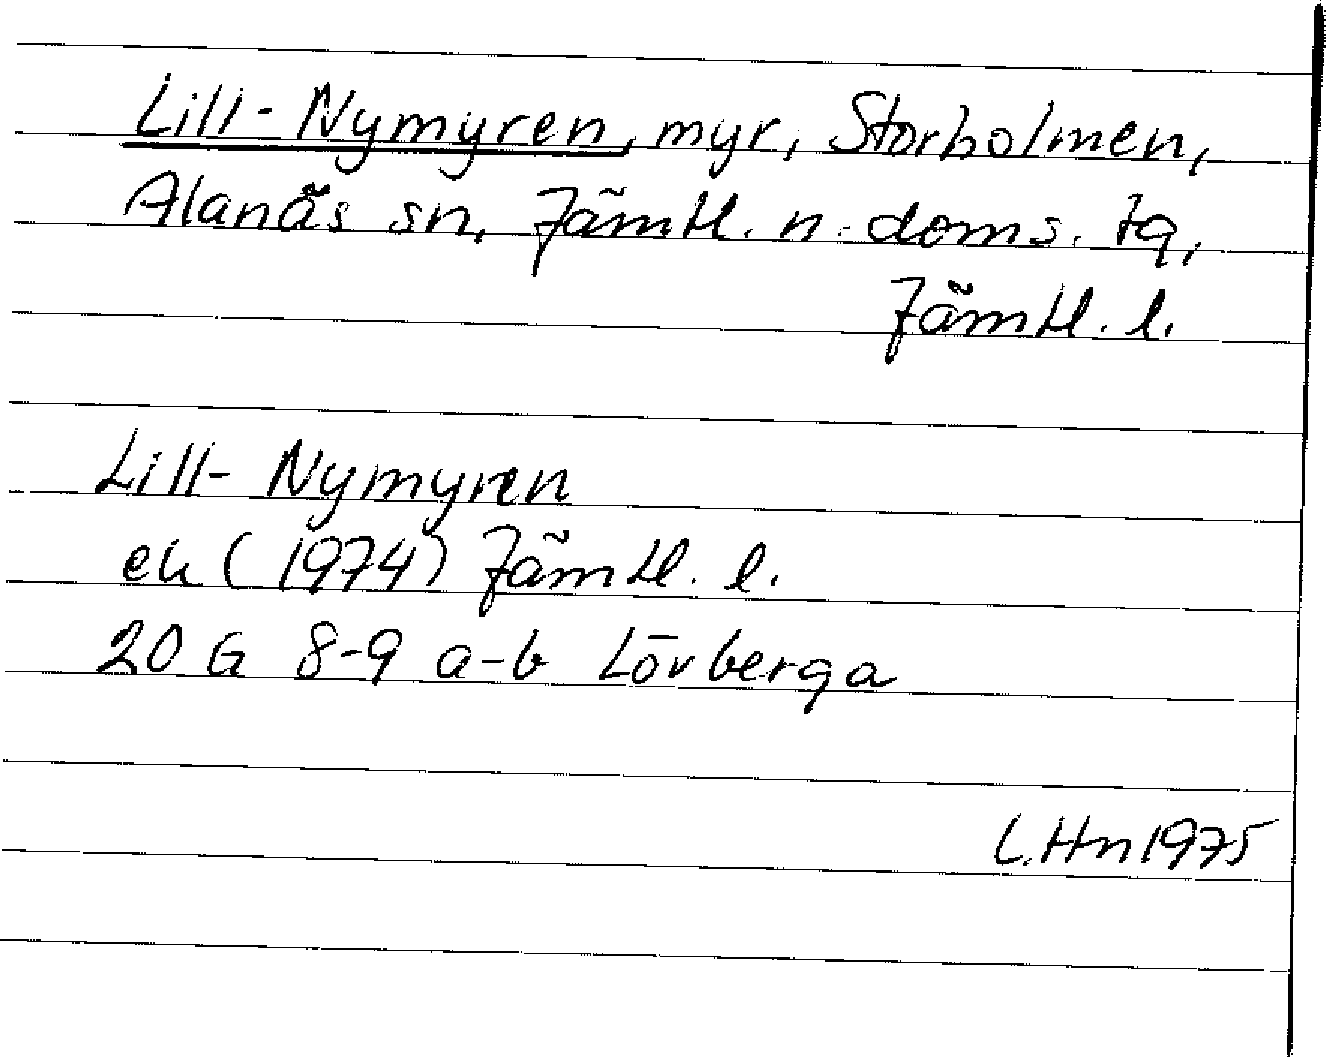 Lill-Nymyren, myr, Storholmen,
Alanäs sn, Jämtl. n. doms. tg,
Jämtl. l.
Lill-Nymyren
ek (1974) Jämtl. l.
20 G 8-9 a-b Lövberga
L.Hn 1975